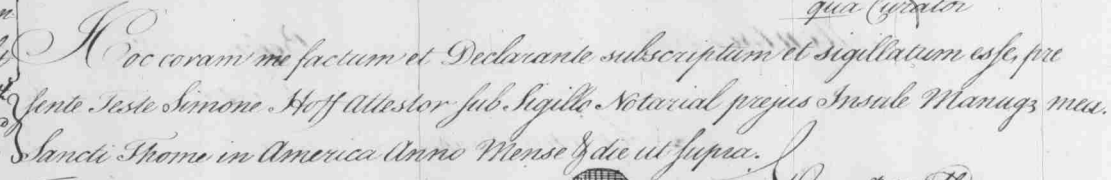 qua Curator
Hoc coram me factum et Declarante subscriptum et sigillatum esse, pre
sente Teste Simone Hoff Attestor sub Sigillo Notarial prejus Insule Manuqz mea.
Sancti Thome in America Anno Mense & die ut supra.